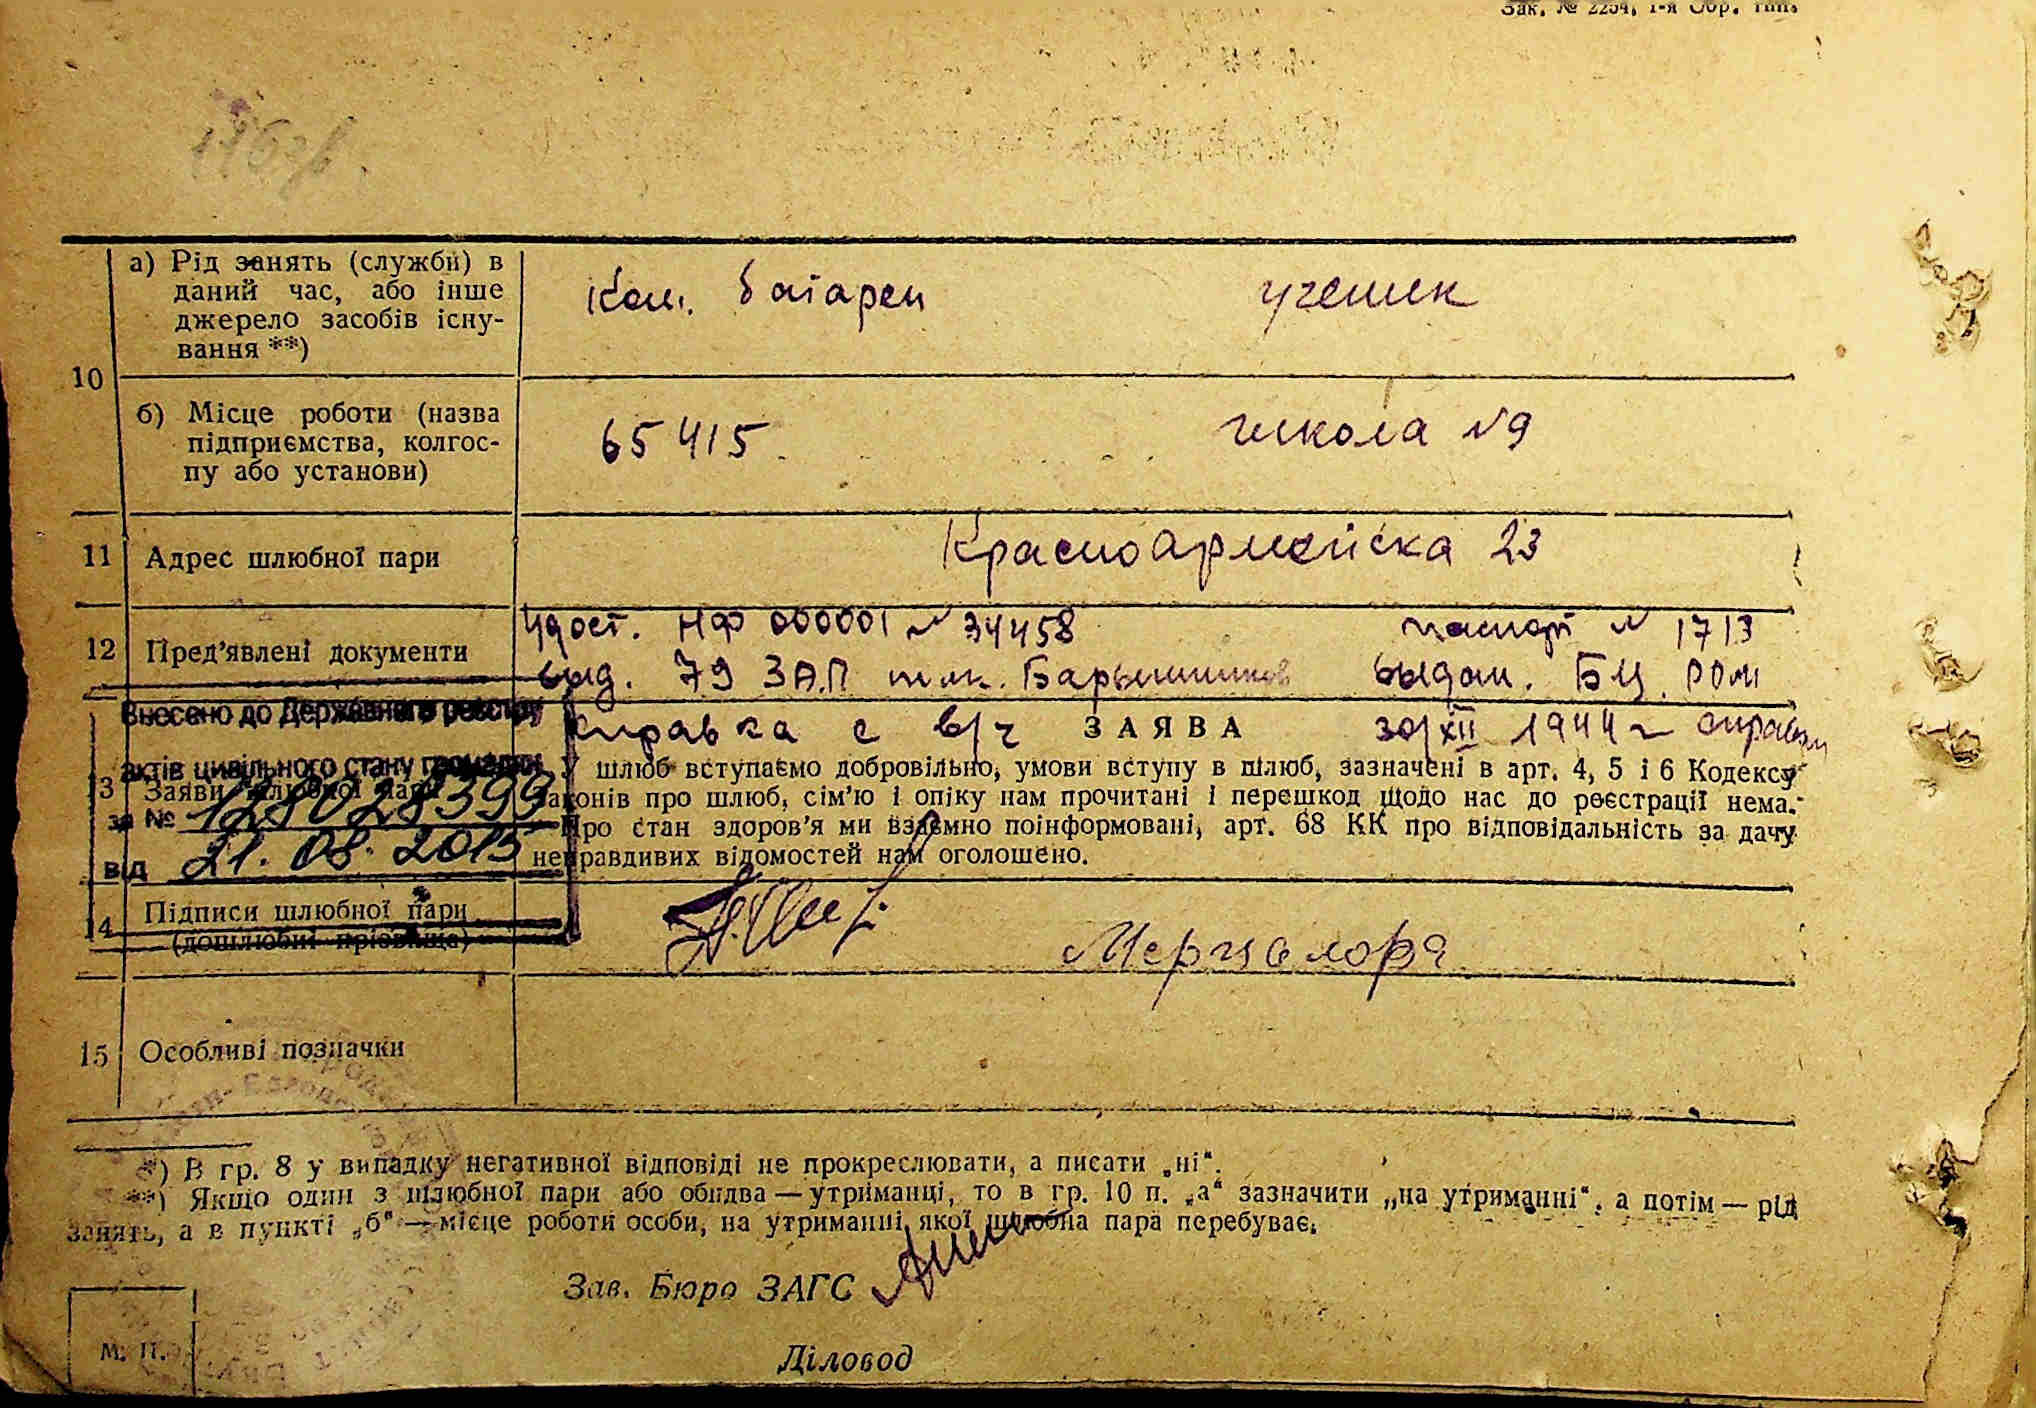 Зак. № 2254, 1-я Обр. тип.
а) Рід занять (служби) в
даний час, або інше
джерело засобів існу-
вання **)
Ком. батареи
ученик
10
б) Місце роботи (назва
підприємства, колгос-
пу або установи)
65415
школа №9
11
Адрес шлюбної пари
Красноармейска 23
12
Пред’явлені документи
удост. НФ 000001 № 34458
паспорт № 1713
выд. 79 ЗАП
выдан. БЦ РОМ
Внесено до Державного реєстру
справка с в/ч
ЗАЯВА
30/XII 1944 г справка
актів цивільного стану громадян
У шлюб вступаємо добровільно, умови вступу в шлюб, зазначені в арт. 4, 5 і 6 Кодексу
3
Заяви шлюбної пари
законів про шлюб, сім’ю і опіку нам прочитані і перешкод щодо нас до реєстрації нема.
за № 128028399
Про стан здоров’я ми взаємно поінформовані, арт. 68 КК про відповідальність за дачу
від 21.08.2013
неправдивих відомостей нам оголошено.
4
Підписи шлюбної пари
(дошлюбні прізвища)
Мерцалова
15
Особливі позначки
*) В гр. 8 у випадку негативної відповіді не прокреслювати, а писати „ні“.
**) Якщо один з шлюбної пари або обидва — утриманці, то в гр. 10 п. „а“ зазначити „на утриманні“, а потім — рід
занять, а в пункті „б“ — місце роботи особи, на утриманні якої шлюбна пара перебуває.
Зав. Бюро ЗАГС
М. П.
Діловод